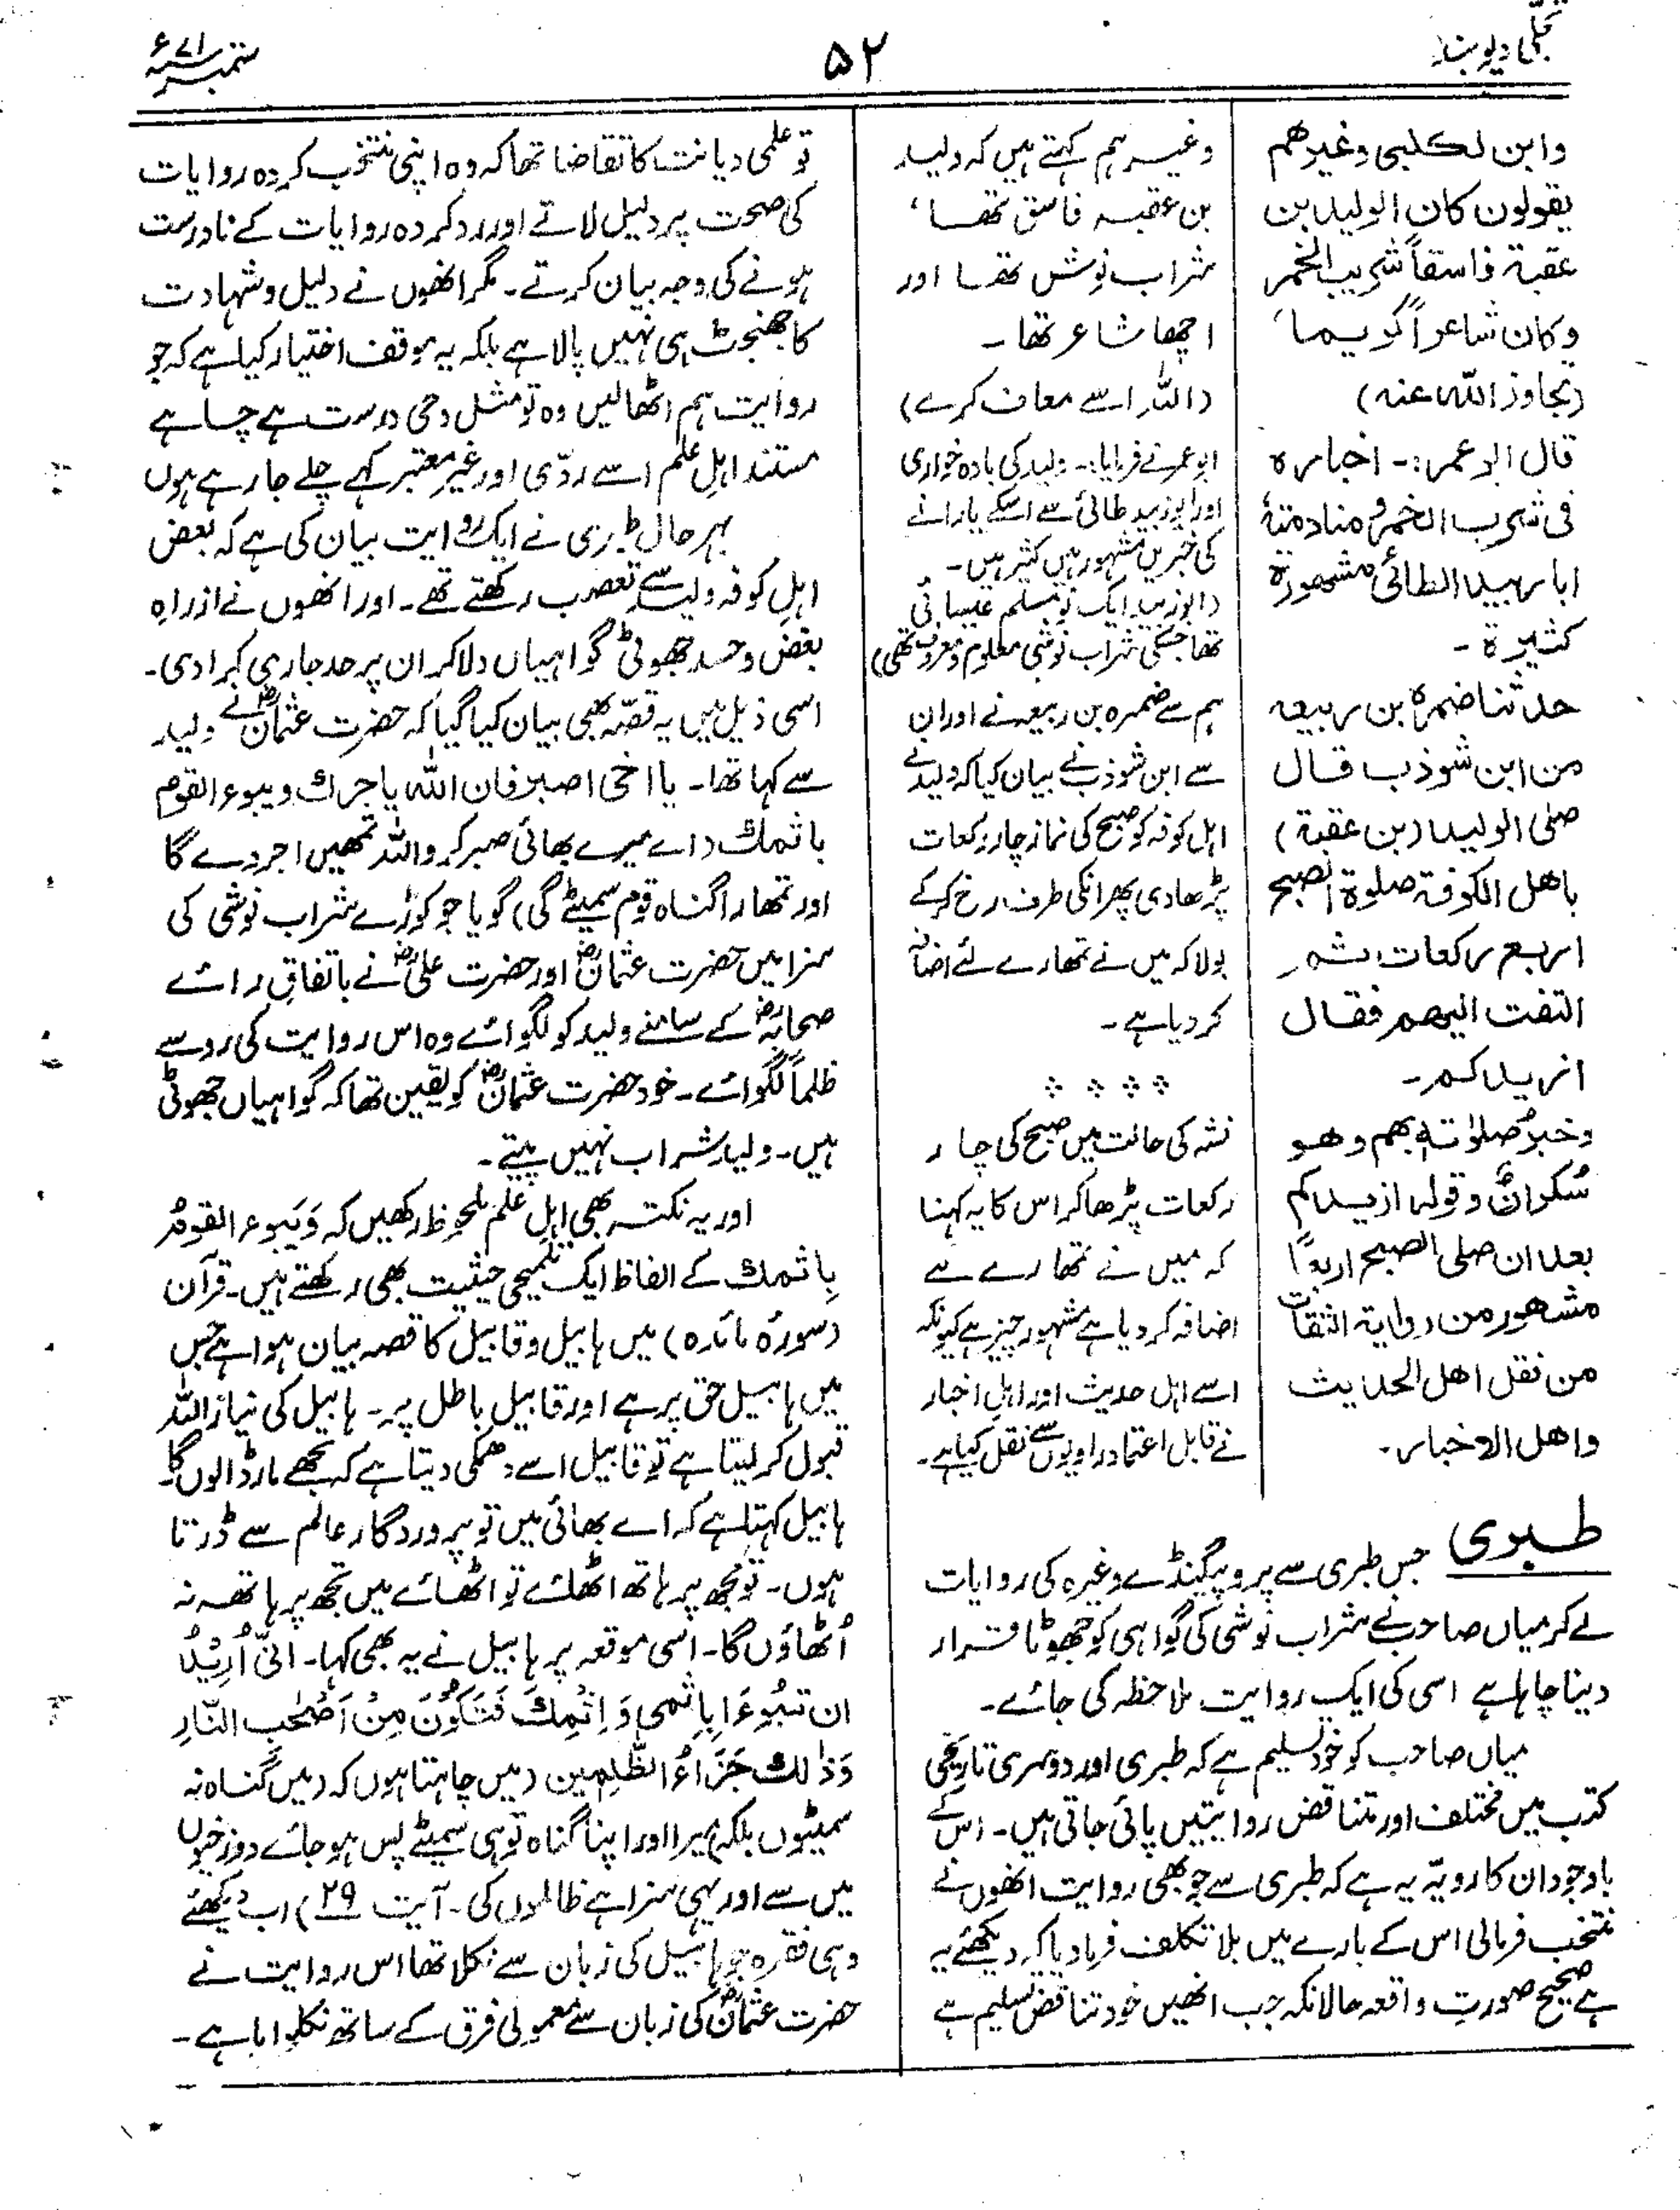 تجلی دیوبند
۵۲
ستمبر ۷۱ء
وابن لكلبی وغیرهم
یقولون كان الولید بن
عقبة فاسقاً شریب الخمر
وكان شاعراً كریما،
(تجاوز الله عنه)
قال ابو عمر:- اخباره
فی شرب الخمر و منادمتهٔ
ابا زبید الطائی مشهورة
كثیرة -
حدثنا ضمرة بن ربیعه
من ابن شوذب قال
صلی الولید (بن عقبة)
باهل الكوفة صلوة الصبح
اربع ركعات ثمر
التفت الیهم فقال
ازیدكم-
وخبرُ صلوٰتهٖ بهم وهو
سُكرانٌ وقوله ازیدكم
بعد ان صلی الصبح اربعًا
مشهور من روایة الثقات
من نقل اهل الحدیث
واهل الاخبار-
وغیرہم کہتے ہیں کہ ولید
بن عقبہ فاسق تھا،
شراب نوش تھا اور
اچھا شاعر تھا۔
(اللہ اسے معاف کرے)
ابو عمر نے فرمایا:۔ ولید کی بادہ خواری
اور ابو زبید طائی سے اسکے یارانے
کی خبریں مشہور ہیں کثیر ہیں۔
(ابوزبید ایک نو مسلم عیسائی
تھا جسکی شراب نوشی معلوم و معروف تھی)
ہم سے ضمرہ بن ربیعہ نے اوران
سے ابن شوذب نے بیان کیا کہ ولید نے
اہل کوفہ کو صبح کی نماز چار رکعات
پڑھادی پھر انکی طرف رخ کرکے
بولا کہ میں نے تمھارے لئے اضافہ
کر دیا ہے۔
نشہ کی حالت میں صبح کی چار
رکعات پڑھا کر اس کا یہ کہنا
کہ میں نے تمھارے لئے
اضافہ کر دیا ہے مشہور چیز ہے کیونکہ
اسے اہل حدیث اور اہلِ اخبار
نے قابل اعتماد راویوں سے نقل کیا ہے۔
طبری جس طبری سے پروپیگنڈے وغیرہ کی روایات
لے کر میاں صاحب نے شراب نوشی کی گواہی کو جھوٹا قرار
دینا چاہا ہے اسی کی ایک روایت ملاحظہ کی جائے۔
میاں صاحب کو خود تسلیم ہے کہ طبری اور دوسری تاریخی
کتب میں مختلف اور متناقض روایتیں پائی جاتی ہیں۔ اس کے
باوجود ان کا رویّہ یہ ہے کہ طبری سے جو بھی روایت انھوں نے
منتخب فرمالی اس کے بارے میں بلا تکلف فرمادیا کہ دیکھئے یہ
ہے صحیح صورتِ واقعہ حالانکہ جب انھیں خود تناقض تسلیم ہے
تو علمی دیانت کا تقاضا تھا کہ وہ اپنی منتخب کردہ روایات
کی صحت پر دلیل لاتے اور رد کردہ روایات کے نادرست
ہونے کی وجہ بیان کرتے۔ مگر انھوں نے دلیل و شہادت
کا جھنجٹ ہی نہیں پالا ہے بلکہ یہ موقف اختیار کیا ہے کہ جو
روایت ہم اٹھالیں وہ تو مثل وحی درست ہے چاہے
مستند اہلِ علم اسے ردّی اور غیر معتبر کہے چلے جارہے ہوں
بہر حال طبری نے ایک روایت بیان کی ہے کہ بعض
اہلِ کوفہ ولید سے تعصب رکھتے تھے۔ اور انھوں نے از راہِ
بغض و حسد جھوٹی گواہیاں دلاکر ان پر حد جاری کرادی۔
اسی ذیل میں یہ قصّہ بھی بیان کیا گیا کہ حضرت عثمانؓ نے ولید
سے کہا تھا۔ یا اخی اصبر فان الله یاجرك ویبوء القوم
باثمك (اے میرے بھائی صبر کرو اللہ تمھیں اجر دے گا
اور تمھارا گناہ قوم سمیٹے گی) گویا جو کوڑے شراب نوشی کی
سزا میں حضرت عثمانؓ اور حضرت علیؓ نے باتفاقِ رائے
صحابہؓ کے سامنے ولید کو لگوائے وہ اس روایت کی رو سے
ظلماً لگوائے۔ خود حضرت عثمانؓ کو یقین تھا کہ گواہیاں جھوٹی
ہیں۔ ولید شراب نہیں پیتے۔
اور یہ نکتہ بھی اہلِ علم ملحوظ رکھیں کہ وَیَبوء القومُ
بِاثمك کے الفاظ ایک تلمیحی حیثیت بھی رکھتے ہیں۔ قرآن
(سورۂ مائدہ) میں ہابیل وقابیل کا قصہ بیان ہوا ہے جس
میں ہابیل حق پر ہے اور قابیل باطل پر۔ ہابیل کی نیاز اللہ
قبول کرلیتا ہے تو قابیل اسے دھمکی دیتا ہے کہ تجھے مار ڈالوں گا۔
ہابیل کہتا ہے کہ اے بھائی میں تو پروردگار عالم سے ڈرتا
ہوں۔ تو مجھ پر ہاتھ اٹھائے تو اٹھائے میں تجھ پر ہاتھ نہ
اُٹھاؤں گا۔ اسی موقعہ پر ہابیل نے یہ بھی کہا۔ انّی اُرِیْدُ
ان تَبُوْءَا بِاِثمی وَاِثْمِكَ فَتَكُوْنَ مِنْ اَصْحٰبِ النَّارِ
وَذٰلك جَزَاءُ الظّٰلِمین (میں چاہتا ہوں کہ (میں گناہ نہ
سمیٹوں بلکہ) میرا اور اپنا گناہ تو ہی سمیٹے پس ہوجائے دوزخیوں
میں سے اور یہی سزا ہے ظالموں کی۔ آیت ۲۹) اب دیکھئے
وہی فقرہ جو ہابیل کی زبان سے نکلا تھا اس روایت نے
حضرت عثمانؓ کی زبان سے معمولی فرق کے ساتھ نکلوایا ہے۔